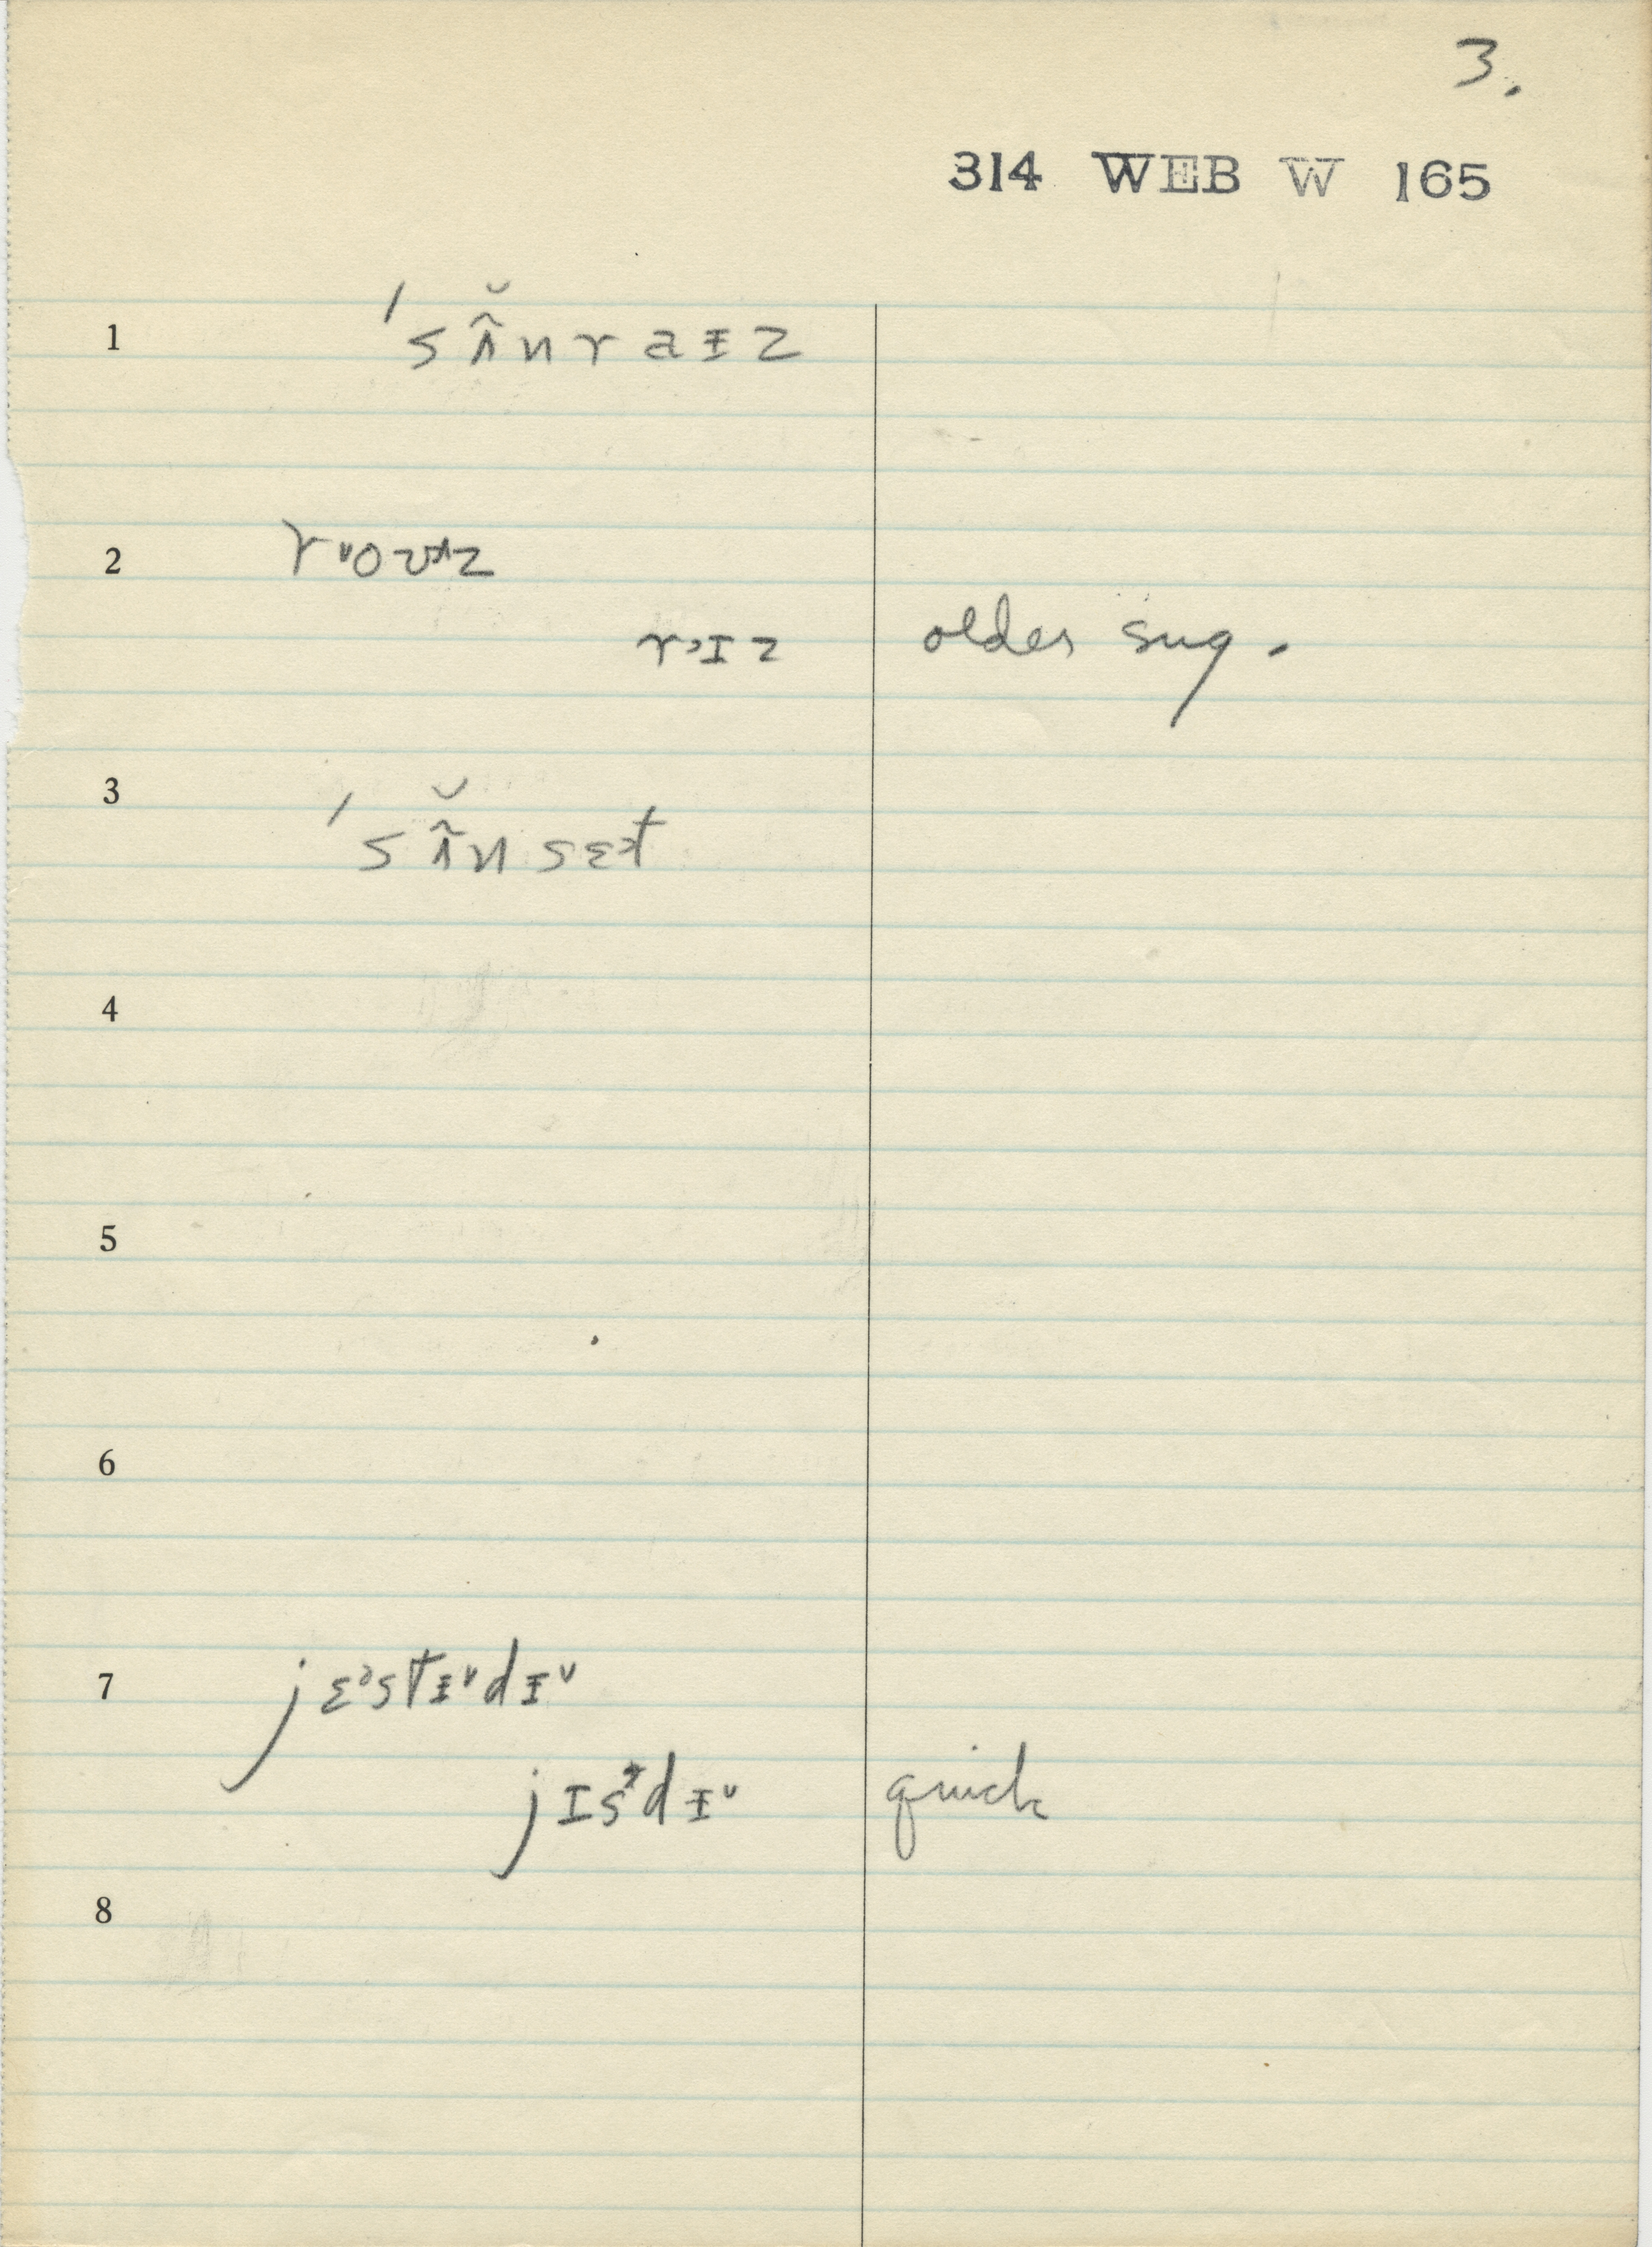 3.
314 WEB W 165
1 ˈsʌ̃̆nraɪz
2 r ᵛovᵊz
r˃ɪz older sug.
3 ˈsʌ̃̆nsɛ˃t
4
5
6
7 jɛ˃stɨᵛdɨᵛ
jɪsᵊdɨᵛ quick
8